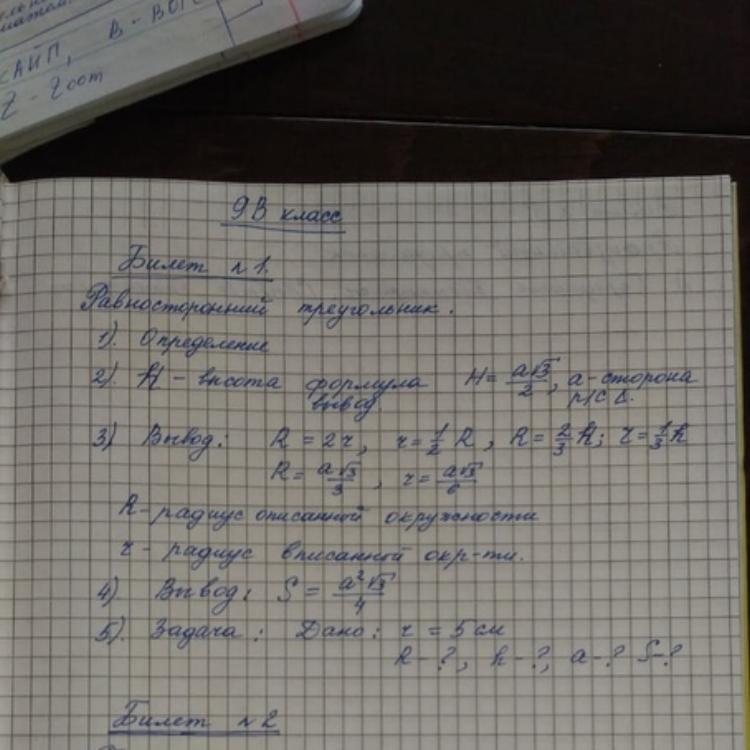 САЙП, В - ВОГ
Z - Zоот
9В класс
Билет №1.
Равносторонний треугольник.
1). Определение
2). h - высота формула H = a√3/2, а - сторона
вывод. р/с Δ.
3) Вывод: R = 2r, r = 1/2 R, R = 2/3 h; r = 1/3 h
R = a√3/3, r = a√3/6
R - радиус описанной окружности
r - радиус вписанной окр-ти.
4) Вывод: S = a²√3/4
5). Задача: Дано: r = 5 см
R - ?, h - ?, a - ? S - ?
Билет №2